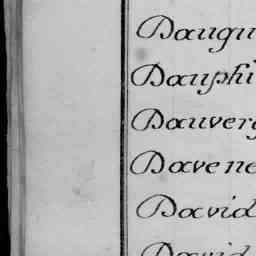 Daugu
Dauphi
Dauverg
Davene
David
David